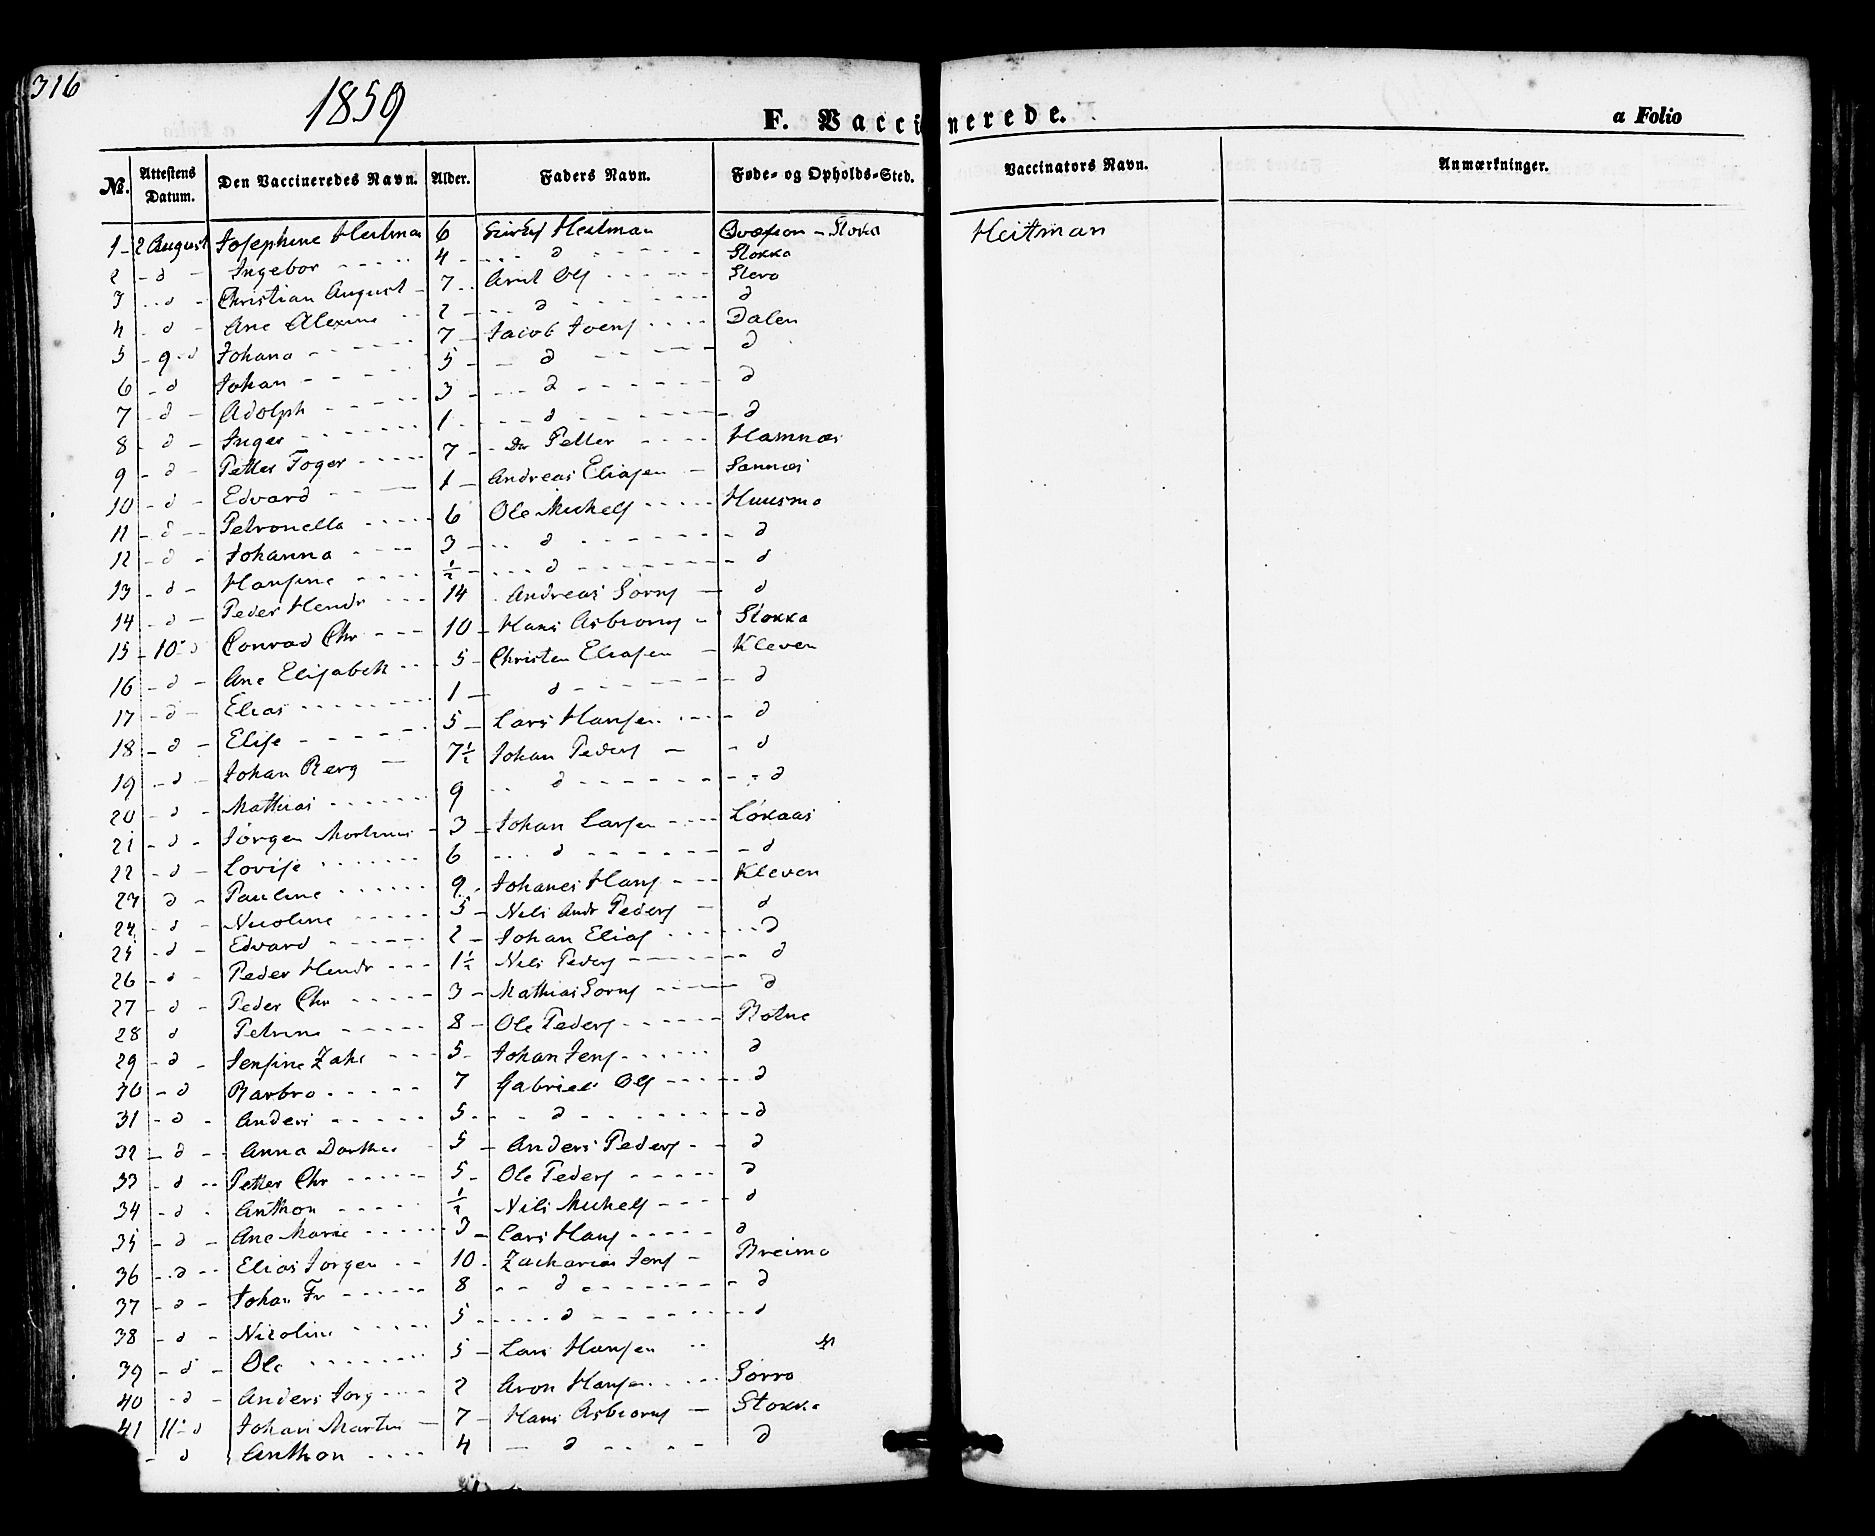 316
1859
F. Vaccinerede.
a Folio
No. Attestens Datum. Den Vaccineredes Navn. Alder. Faders Navn. Føde- og Opholds-Sted. Vaccinators Navn. Anmærkninger.
1 - 2 August Josephine Heitman 6 Heitman - Stoka Heitman
2 - d - Ingebor - - - - 4 - - - d - - - Stokka
3 - d - Christian August - 7 - Arnt Ols - - - Stero
4 - d - Ane Alexine - - 2 - - - d - - - d
5 - 9 - d Johana - - - 7 - Jacob Joens - - - Dalen
6 - d Johan - - - 5 - - d - - - d
7 - d - Adolph - - - 3 - - - d - - - d
8 - d - Inger - - - 1 - - - d - - - d
9 - d - Petter Foger - - - 7 - Petter - - - Hamnæs
10 - d - Edvard - - - 1 - Andreas Eliasen - Sannæs
11 - d - Petronella - - - 6 Ole Michels - - - Huusmo
12 - d - Johanna - - - 3 - - d - - - d
13 - d - Hansine - - - ½ - - - d - - - d
14 - d - Peder Hendr - - - 14 Andreas Sørns - d
15 - 10 - d Conrad Chr - - - 10 - Hans Asbiorns - Stokka
16 - d - Ane Elisabeth - - 5 - Christen Eliasen - Kleven
17 - d - Elias - - - 1 - d - - - d
18 - d - Elise - - - 5 - Lars Hansen - - - d
19 - d - Johan Berg - 7½ Johan Peders - - d
20 - d - Mathias - - - 9 - - d - - - d
21 - d - Jørgen Martinus - 3 - Johan Larsen - - - Løkaas
22 - d - Lovise - - - 6 - - - d - - - d
23 d - Pauline - - - 9 - Johanes Hans - - - Kleven
24 - d - Nicoline - - - 5 - Nils Andr Peders - d
25 - d - Edvard - - - 2 - Johan Elias - - - d
26 - d - Peder Hendr - - - 1½ - Nils Peders - - - d
27 - d - Peder Chr - - - 3 - Mathias Sorns - - - d
28 d Petrine - - - 8 - Ole Peders - - - Botne
29 - d - Jensine Zahr - - - 5 - Johan Jens - - - d
30 - d Barbro - - - 7 Gabriel Ols - - - d
31 - d - Anders - - - 5 - - d - - - d
32 - d - Anna Dorthea 5 - Anders Peders - - d
33 - d - Petter Chr - - - 5 - Ole Peders - - - d
34 - d - Anthon - - - ½ - Nils Michels - - - d
35 - d - Ane Marie - - - 3 - Lars Hans - - - d
36 - d - Elias Jørgen - - 10 - Zacharias Jens - Breimo
37 - d - Johan Fr - - - 8 - - d - - - d
38 - d - Nicoline - - - 5 - - - d - - - d
39 - d - Ole - - - 5 - Lars Hansen - -
40 - d - Anders Jørg - - - 2 Aron Hansen - - - Sørro
41 11 - d Johan Martin - 7 - Hans Asbiorns - Stokke
- d Anthon - - - 4 - d - - - d